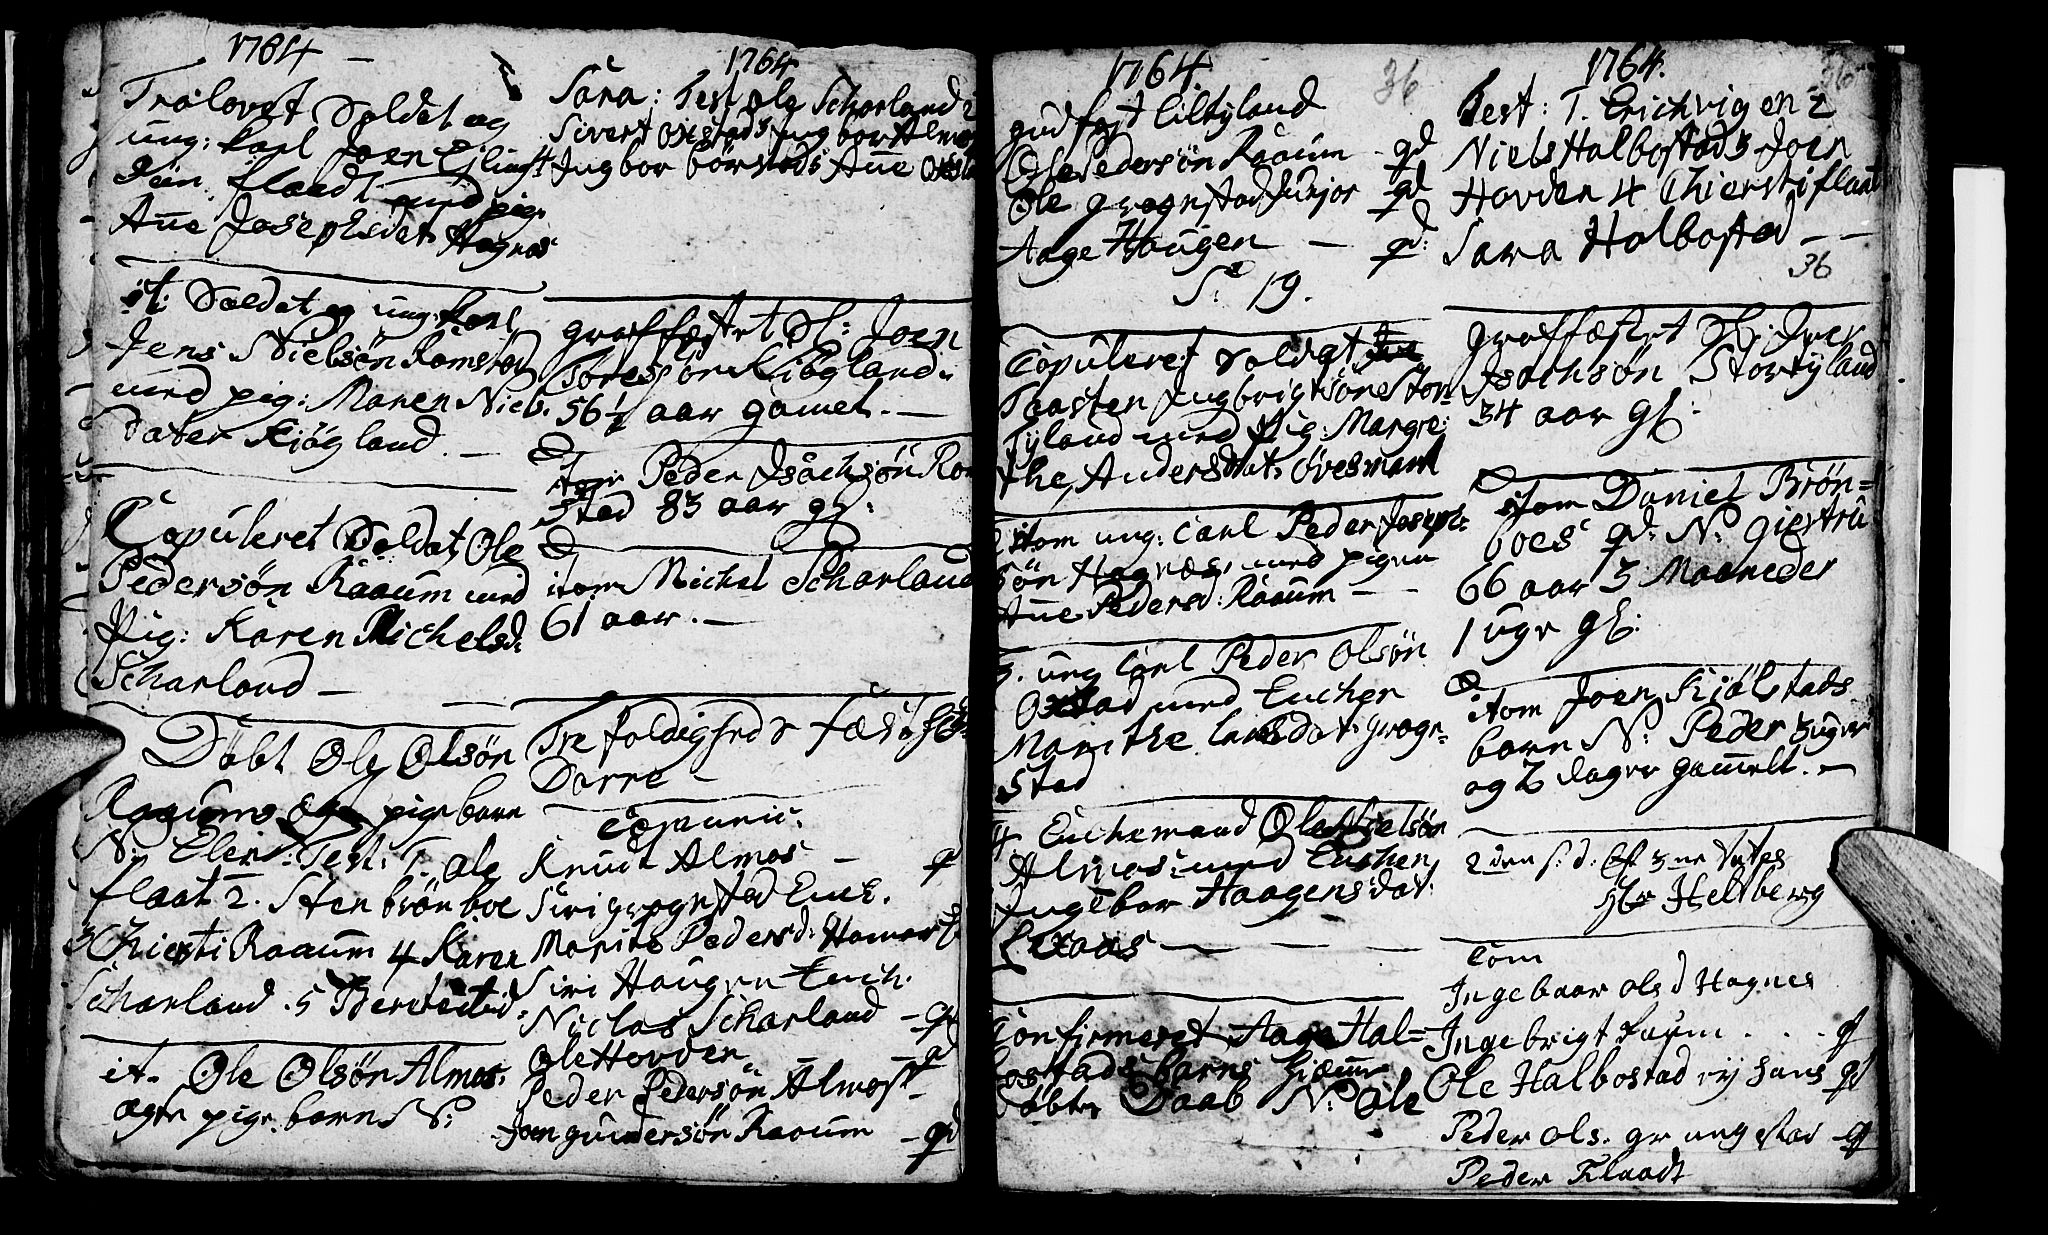 1764
Trolovet Soldat og
ung: karl Joen
flaadt med pig:
Añe Josephsdat: Hagnæs
it: Soldat og ung: karl
Jens Nielsøn Romstad
med pig: Maren Niels
dater Kiøgland.
Copuleret Soldat Ole
Pedersøn Raaum med
Pig: Karen Michelsd:
Scharland
Døbt Ole Olsøn
Raaums ægte pigebarn
N: Elen: Test: T. Ole
flaat 2. Sten brønboe
3 Chiersti Raaum 4 Karen
Scharland. 5
it. Ole Olsøn Almos:
ægte pige barn N:
1764
Sara: Test Ole Scharland 2
Sivert Oxstad 3 Ingbor Almos
Ingbor børstad 5 Añe
graffæstet Sl: Joen
Toresøn Kiøgland.
56½ aar gamel.
itom Peder Isachsøn Rom
stad 83 aar gl:
itom Michel Scharland
61 aar.
Trefoldigheds
Communic:
Knudt Almos qd
Siri grognstad Enk.
Marite Pedersd: Homo
Siri Haugen Ench.
Niclas Scharland qd
Ole Horden qd
Peder Pedersøn Almos
Joen gundersøn Raaum qd
1764. 36
gudfast liltyland
Ole Pedersøn Raaum qd
Ole grognstad Junjor qd
Aage Haugen qd:
S: 19.
Copuleret Soldat
Taasten Ingbrigtsøn Stor
tyland med Pig: Margre:
the Andersdat: Øvesmank
itom ung: Carl Peder Joseph:
søn Hagnæs med pigen
Añe Pedersd: Raaum
3. ung Carl Peder Olsøn
Oxstad med Enchen
Marithe Larsdat: grogn=
stad
4. Enchemand Ole Nielsøn
Almos med Enchen
Ingebor Haagensdat:
Confirmeret Aage Hal=
bostads barns hiemme
døbte Daab N: Ole
1764. 36
Test: T. Erich vigen 2
Niels Halbostad 3 Joen
Horden 4 Chiersti flaat
Sara Halbostad
36
graffæstet Sl: Iver
Isachsøn Stortyland
34 aar gl:
itom Daniel Brøn=
boes qd: N: giertru
66 aar 3 Maaneder
1 uge gl:
itom Joen Kiølstads
barn N: Peder 3 uger
og 2 dager gamelt.
2den s: d: Eft 3ne
Hr Heltberg
Com
Ingebaar Olsd Hagnes
Ingebrigt Raum qd
Ole Halbostad qd
Peder Ols. grungstad qd
Peder Flaadt